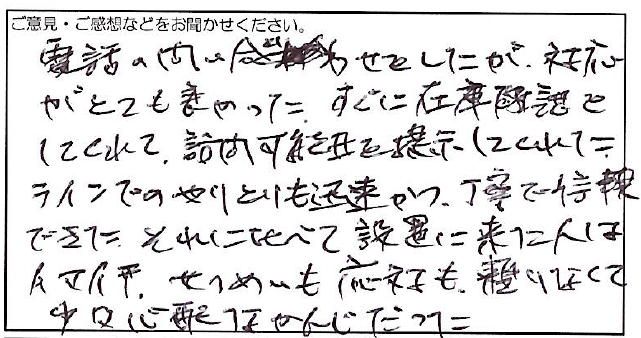 ご意見・ご感想などをお聞かせください。
電話の問い合わせをしたが、対応
がとても良かった。すぐに在庫確認を
してくれて、訪問可能日を提示してくれた。
ラインでのやりとりも迅速かつ、丁寧で信頼
できた。それに比べて設置に来た人は
せつめいも応対も、頼りなくて
少々心配なかんじだった